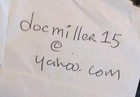 docmiller15
@
yahoo.com